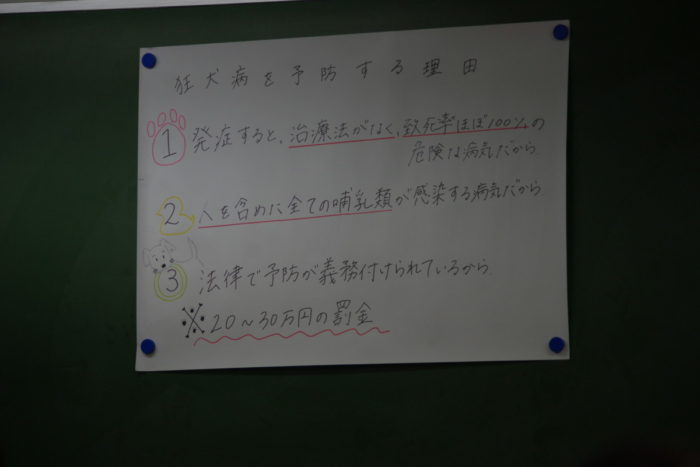 狂犬病を予防する理由
1 発症すると、治療法がなく、致死率ほぼ100%の
危険な病気だから
2 人を含めた全ての哺乳類が感染する病気だから
3 法律で予防が義務付けられているから.
※20～30万円の罰金